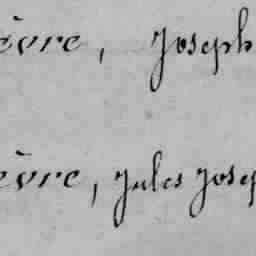 èvre, Joseph
èvre, Jules Josep